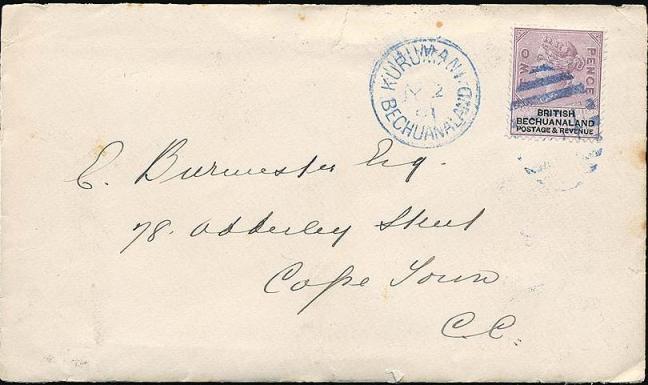 KURUMAN
BECHUANALAND
TWO PENCE
BRITISH
BECHUANALAND
POSTAGE & REVENUE
C. Burmester Esq.
78. Adderley Street
Cape Town
C.C.